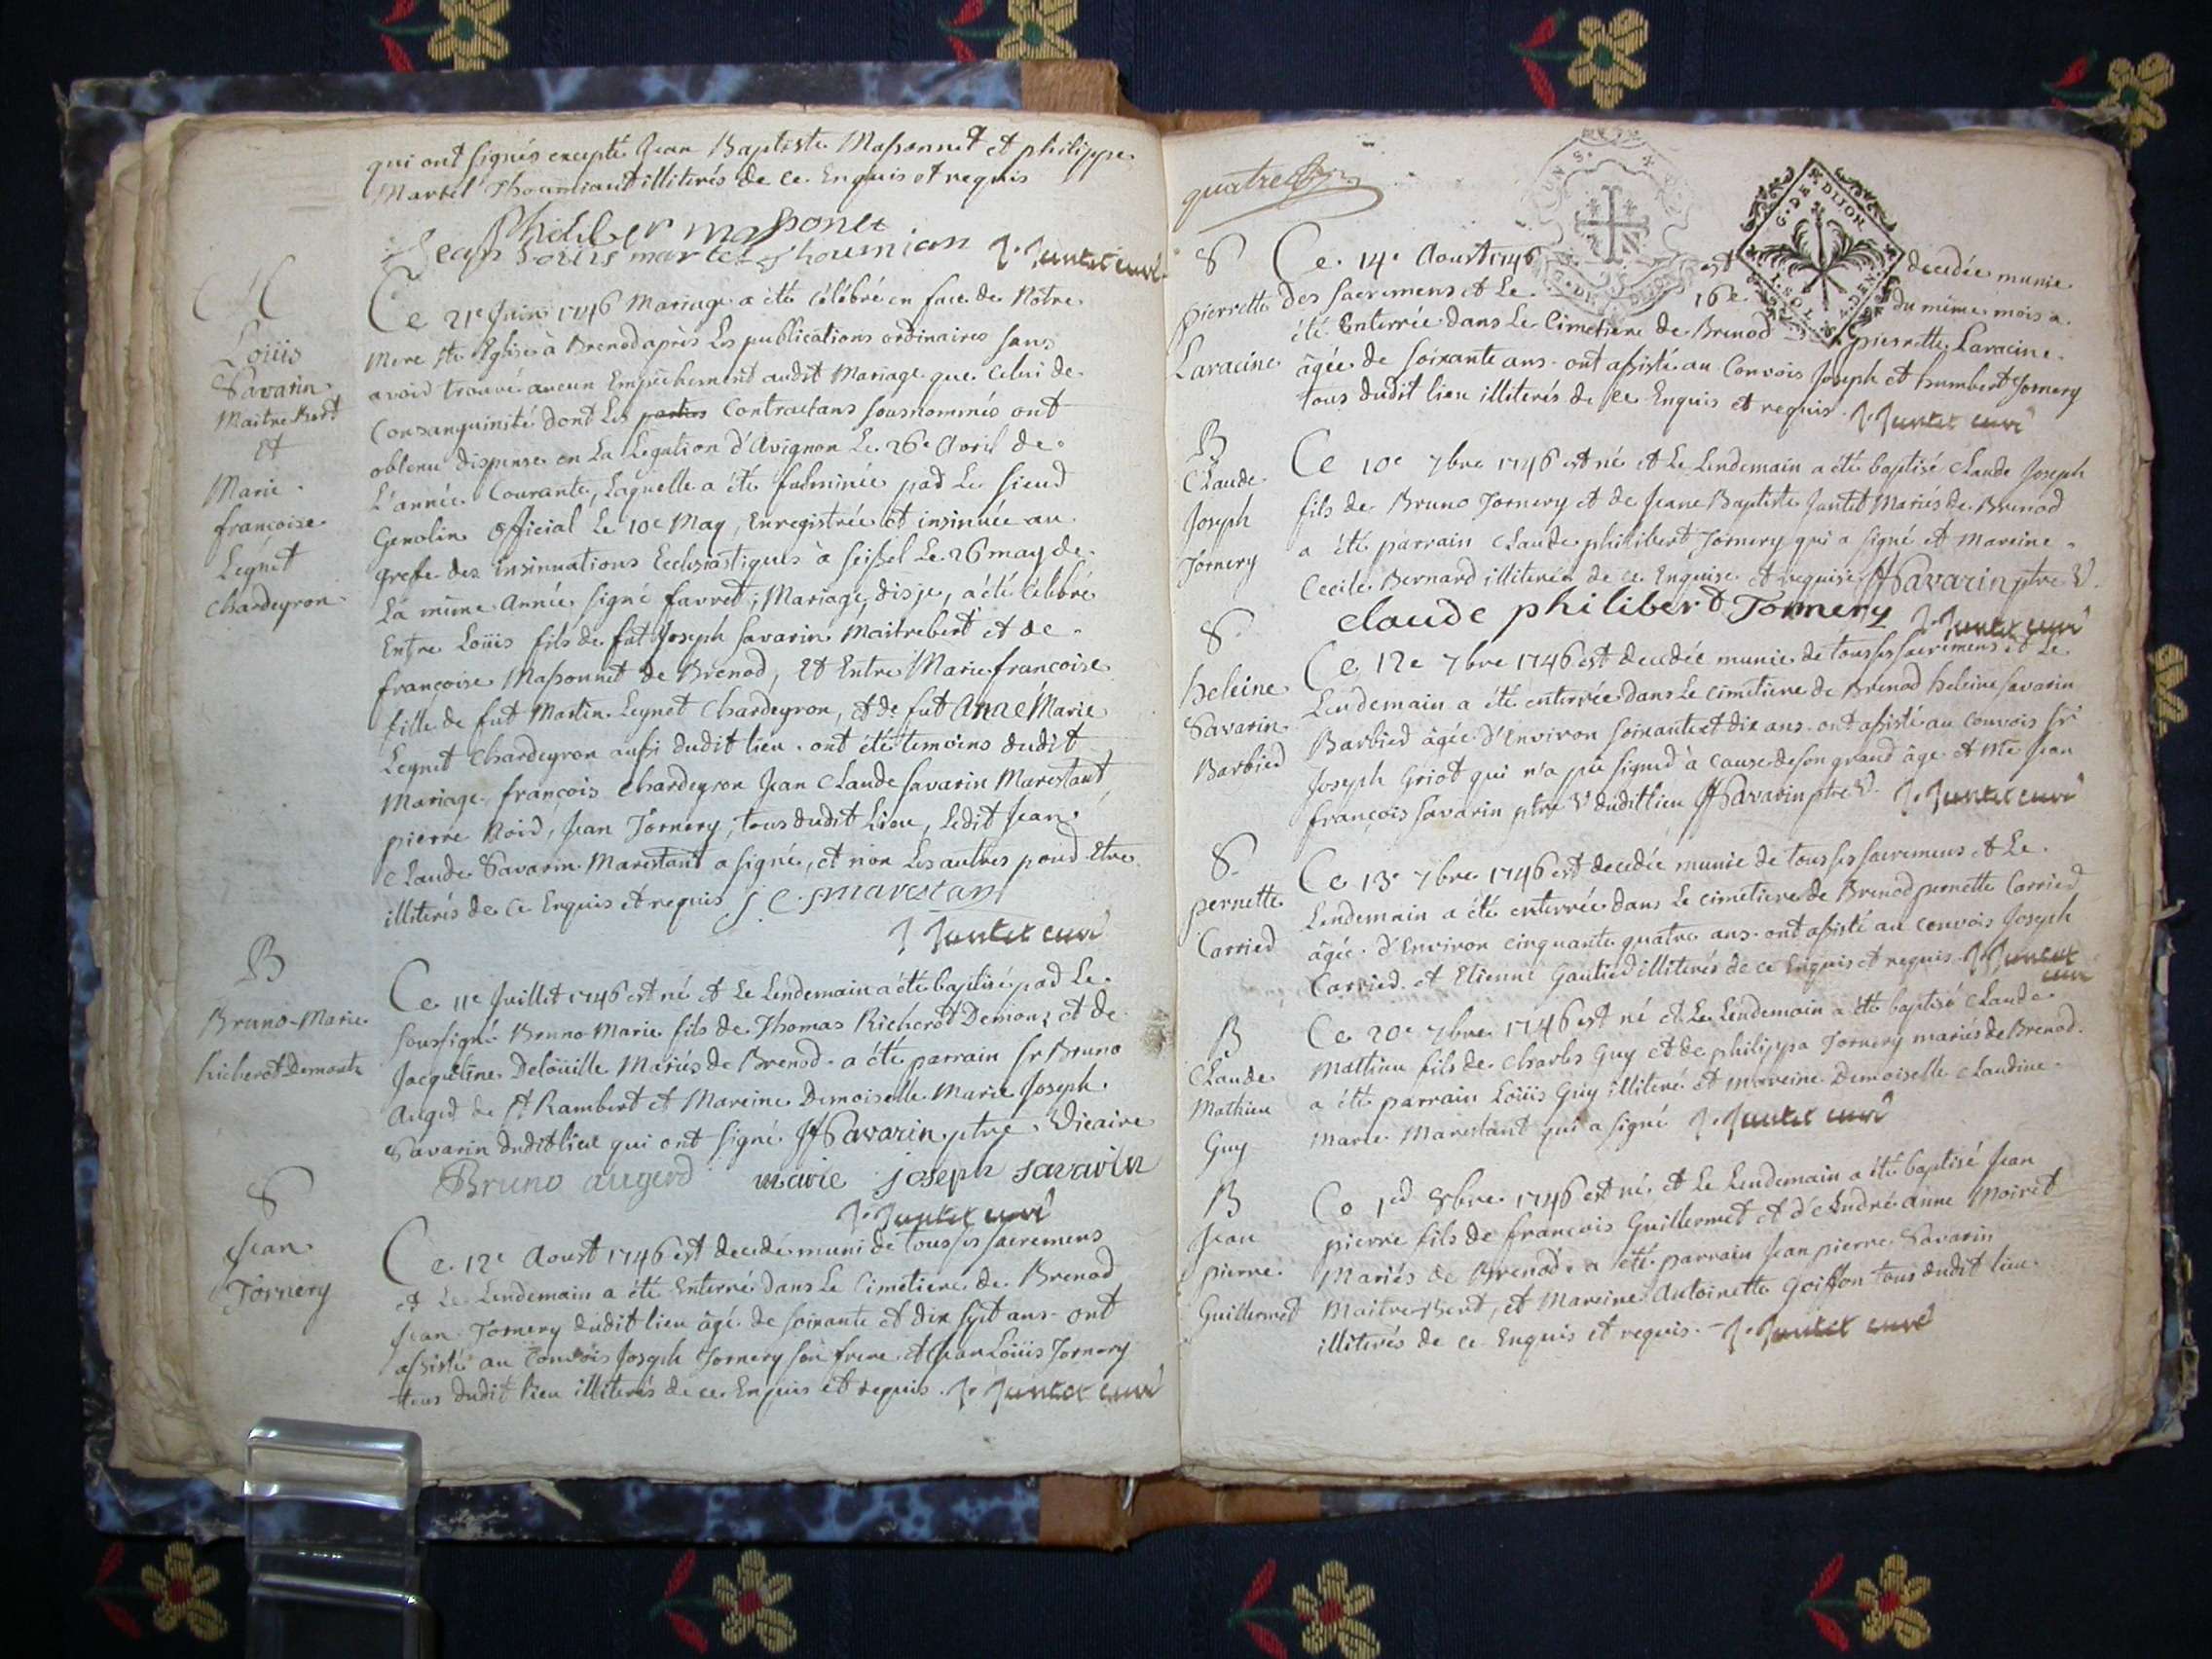 qui ont signés excepté Jean Baptiste Massonnet et philippe
Martel Thoumiant illiterés de ce Enquis et requis
Philiber massonet
Jean Loüis martel thoumian J. Jantet curé
M
Loüis
Savarin
Maitre Bert
et
Marie
françoise
Leynet
Chardeyron
Ce 21e Juin 1746 Mariage a été célébré en face de Nôtre
Mere Ste Eglise à Brenod après Les publications ordinaires sans
avoir trouvé aucun Empêchement audit Mariage que celui de
Consanguinité dont Les parties Contractans sousnommés ont
obtenu dispense en La Legation d'Avignon Le 26e Avril de
L'année Courante, Laquelle a été fulminée par Le sieur
Genolin official Le 10e May, Enregistrée et insinuée au
grefe des insinuations Ecclesiastiques à seissel Le 26 may de
La même Année signé favret; Mariage, disje, a été célébré
Entre Loüis fils de fut Joseph Savarin Maitrebert et de
françoise Massonnet de Brenod, et Entre Marie françoise
fille de fut Martin Leynet Chardeyron, et de fut Anne Marie
Leynet Chardeyron aussi dudit lieu. ont été temoins dudit
Mariage françois Chardeyron Jean Claude Savarin Marestant
pierre Noir, Jean Tornery, tous dudit Lieu, Ledit Jean
Claude Savarin Marestant a signé, et non Les autres pour etre
illiterés de ce Enquis et requis J C marestan
J Jantet curé
B
Bruno-Marie
Richerot Demontz
Ce 11e Juillet 1746 est né et Le Lendemain a été baptisé par Le
soussigné Bruno Marie fils de Thomas Richerot Demonz et de
Jacqueline Deloüille Mariés de Brenod. a été parrain Sr Bruno
Auger de St Rambert et Mareine Demoiselle Marie Joseph
Savarin dudit lieu qui ont signé JfSavarin ptre Vicaire
Bruno augerd marie joseph savarin
J. Jantet curé
S
Jean
Tornery
Ce 12e Aoust 1746 est decedé muni de tous ses sacremens
et Le Lendemain a été Enterré dans Le Cimetiere de Brenod
Jean Tornery dudit lieu âgé de soixante et dix sept ans. ont
assisté au Convois Joseph Tornery son frere et Jean Loüis Tornery
tous dudit lieu illiterés de ce Enquis et requis. J. Jantet curé
quatre
G. DE DIJON
Ce 14e Aoust 1746 est decedée munie
S
pierrette
Laracine
des sacremens et Le 16e du même mois a
été Enterrée dans Le Cimetiere de Brenod pierrette Laracine
âgée de soixante ans. ont assisté au Convois Joseph et humbert Tornery
tous dudit lieu illiterés de ce Enquis et requis. J. Jantet curé
B
Claude
Joseph
Tornery
Ce 10e 7bre 1746 est né et Le Lendemain a été baptisé Claude Joseph
fils de Bruno Tornery et de Jeane Baptiste Jantet Mariés de Brenod
a été parrain Claude philibert Tornery qui a signé et Mareine
Cecile Bernard illiterée de ce Enquise et requise JfSavarin ptre V.
claude philibert Tornery J. Jantet curé
S
heleine
Savarin
Barbier
Ce 12e 7bre 1746 est decedée munie de tous ses sacremens et Le
Lendemain a été enterrée dans Le cimetiere de Brenod heleine Savarin
Barbier âgée d'Environ soixante et dix ans. ont assisté au Convois Sr
Joseph Griot qui n'a pu signer à cause de son grand âge et Mre Jean
françois Savarin ptre V dudit lieu JfSavarin ptre V. J. Jantet curé
S
pernette
Carrier
Ce 13e 7bre 1746 est decedée munie de tous ses sacremens et Le
Lendemain a été enterrée dans Le cimetiere de Brenod pernette Carrier
âgée d'Environ cinquante quatre ans. ont assisté au convois Joseph
Carrier et Etienne Gautier illiterés de ce Enquis et requis. J. Jantet
curé
B
Claude
Mathieu
Guy
Ce 20e 7bre 1746 est né et Le Lendemain a été baptisé Claude
Mathieu fils de Charles Guy et de philippa Tornery mariés de Brenod.
a été parrain Loüis Guy illiteré et Mareine Demoiselle Claudine
Marie Marestant qui a signé J. Jantet curé
B
Jean
pierre
Guillermet
Ce 1er 8bre 1746 est né et Le Lendemain a été baptisé Jean
pierre fils de françois Guillermet et d'André anne Moiret
Mariés de Brenod. a été parrain Jean pierre Savarin
Maitre-Bert, et Mareine Antoinette Goiffon tous dudit lieu
illiterés de ce Enquis et requis. J. Jantet curé